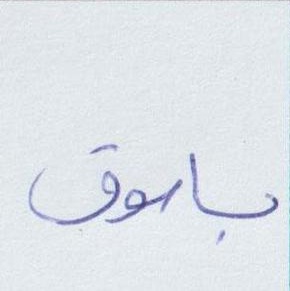 باروق